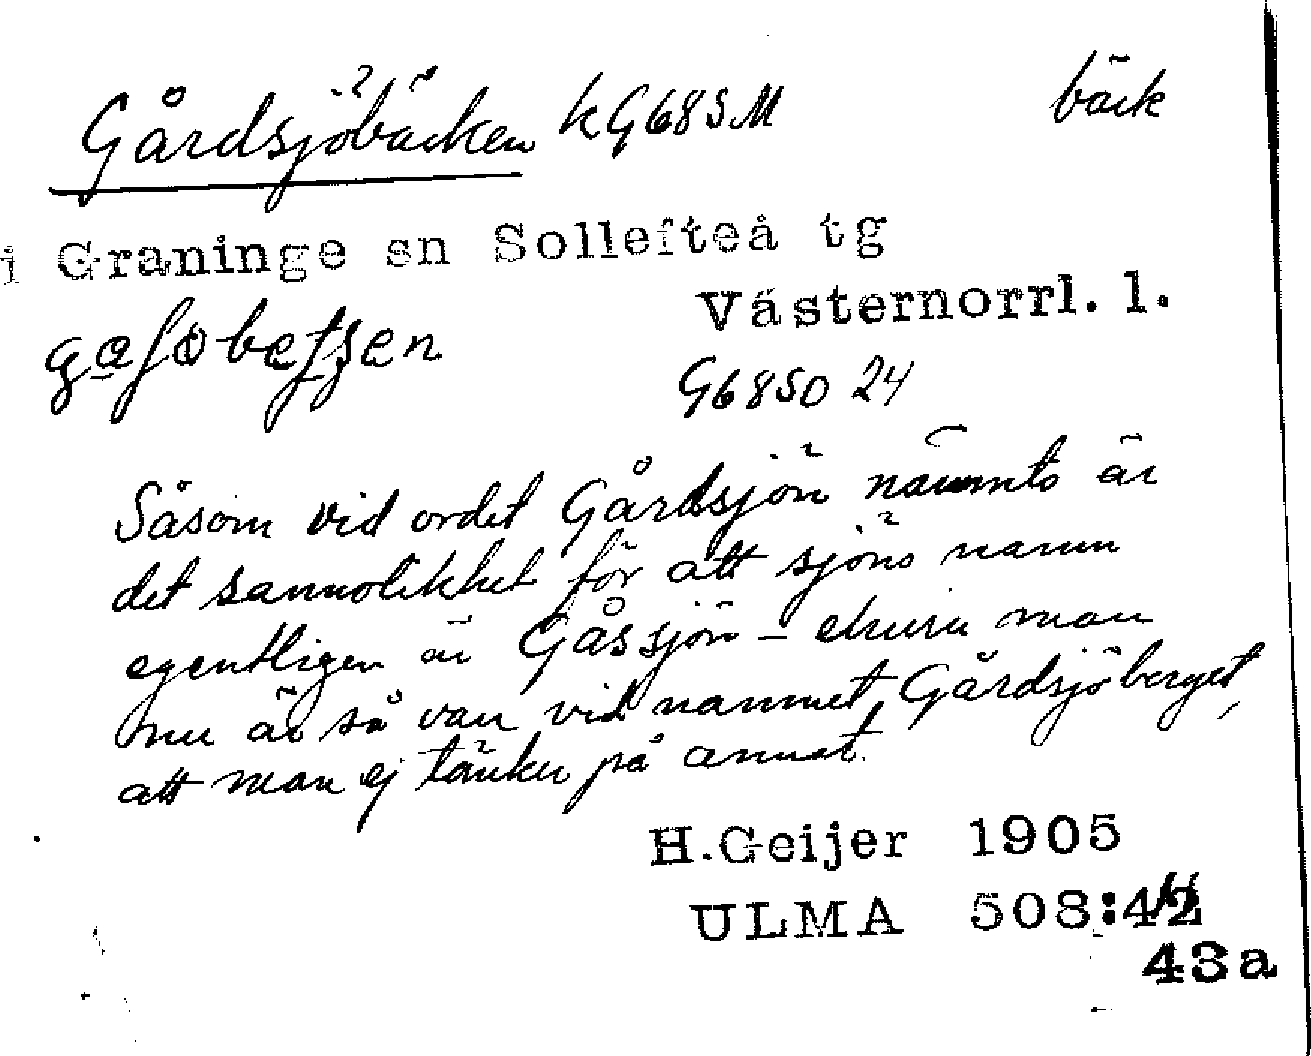 Gårdsjöbäcken kG685M bäck
i Graninge sn Sollefteå tg
Västernorrl. l.
G6850 24
Såsom vid ordet Gårdsjön nämnts är
det sannolikhet för att sjöns namn
egentligen är Gåssjön – ehuru man
nu är så van vid namnet Gårdsjöberget,
att man ej tänker på annat.
H.Geijer 1905
ULMA 508:42
43a